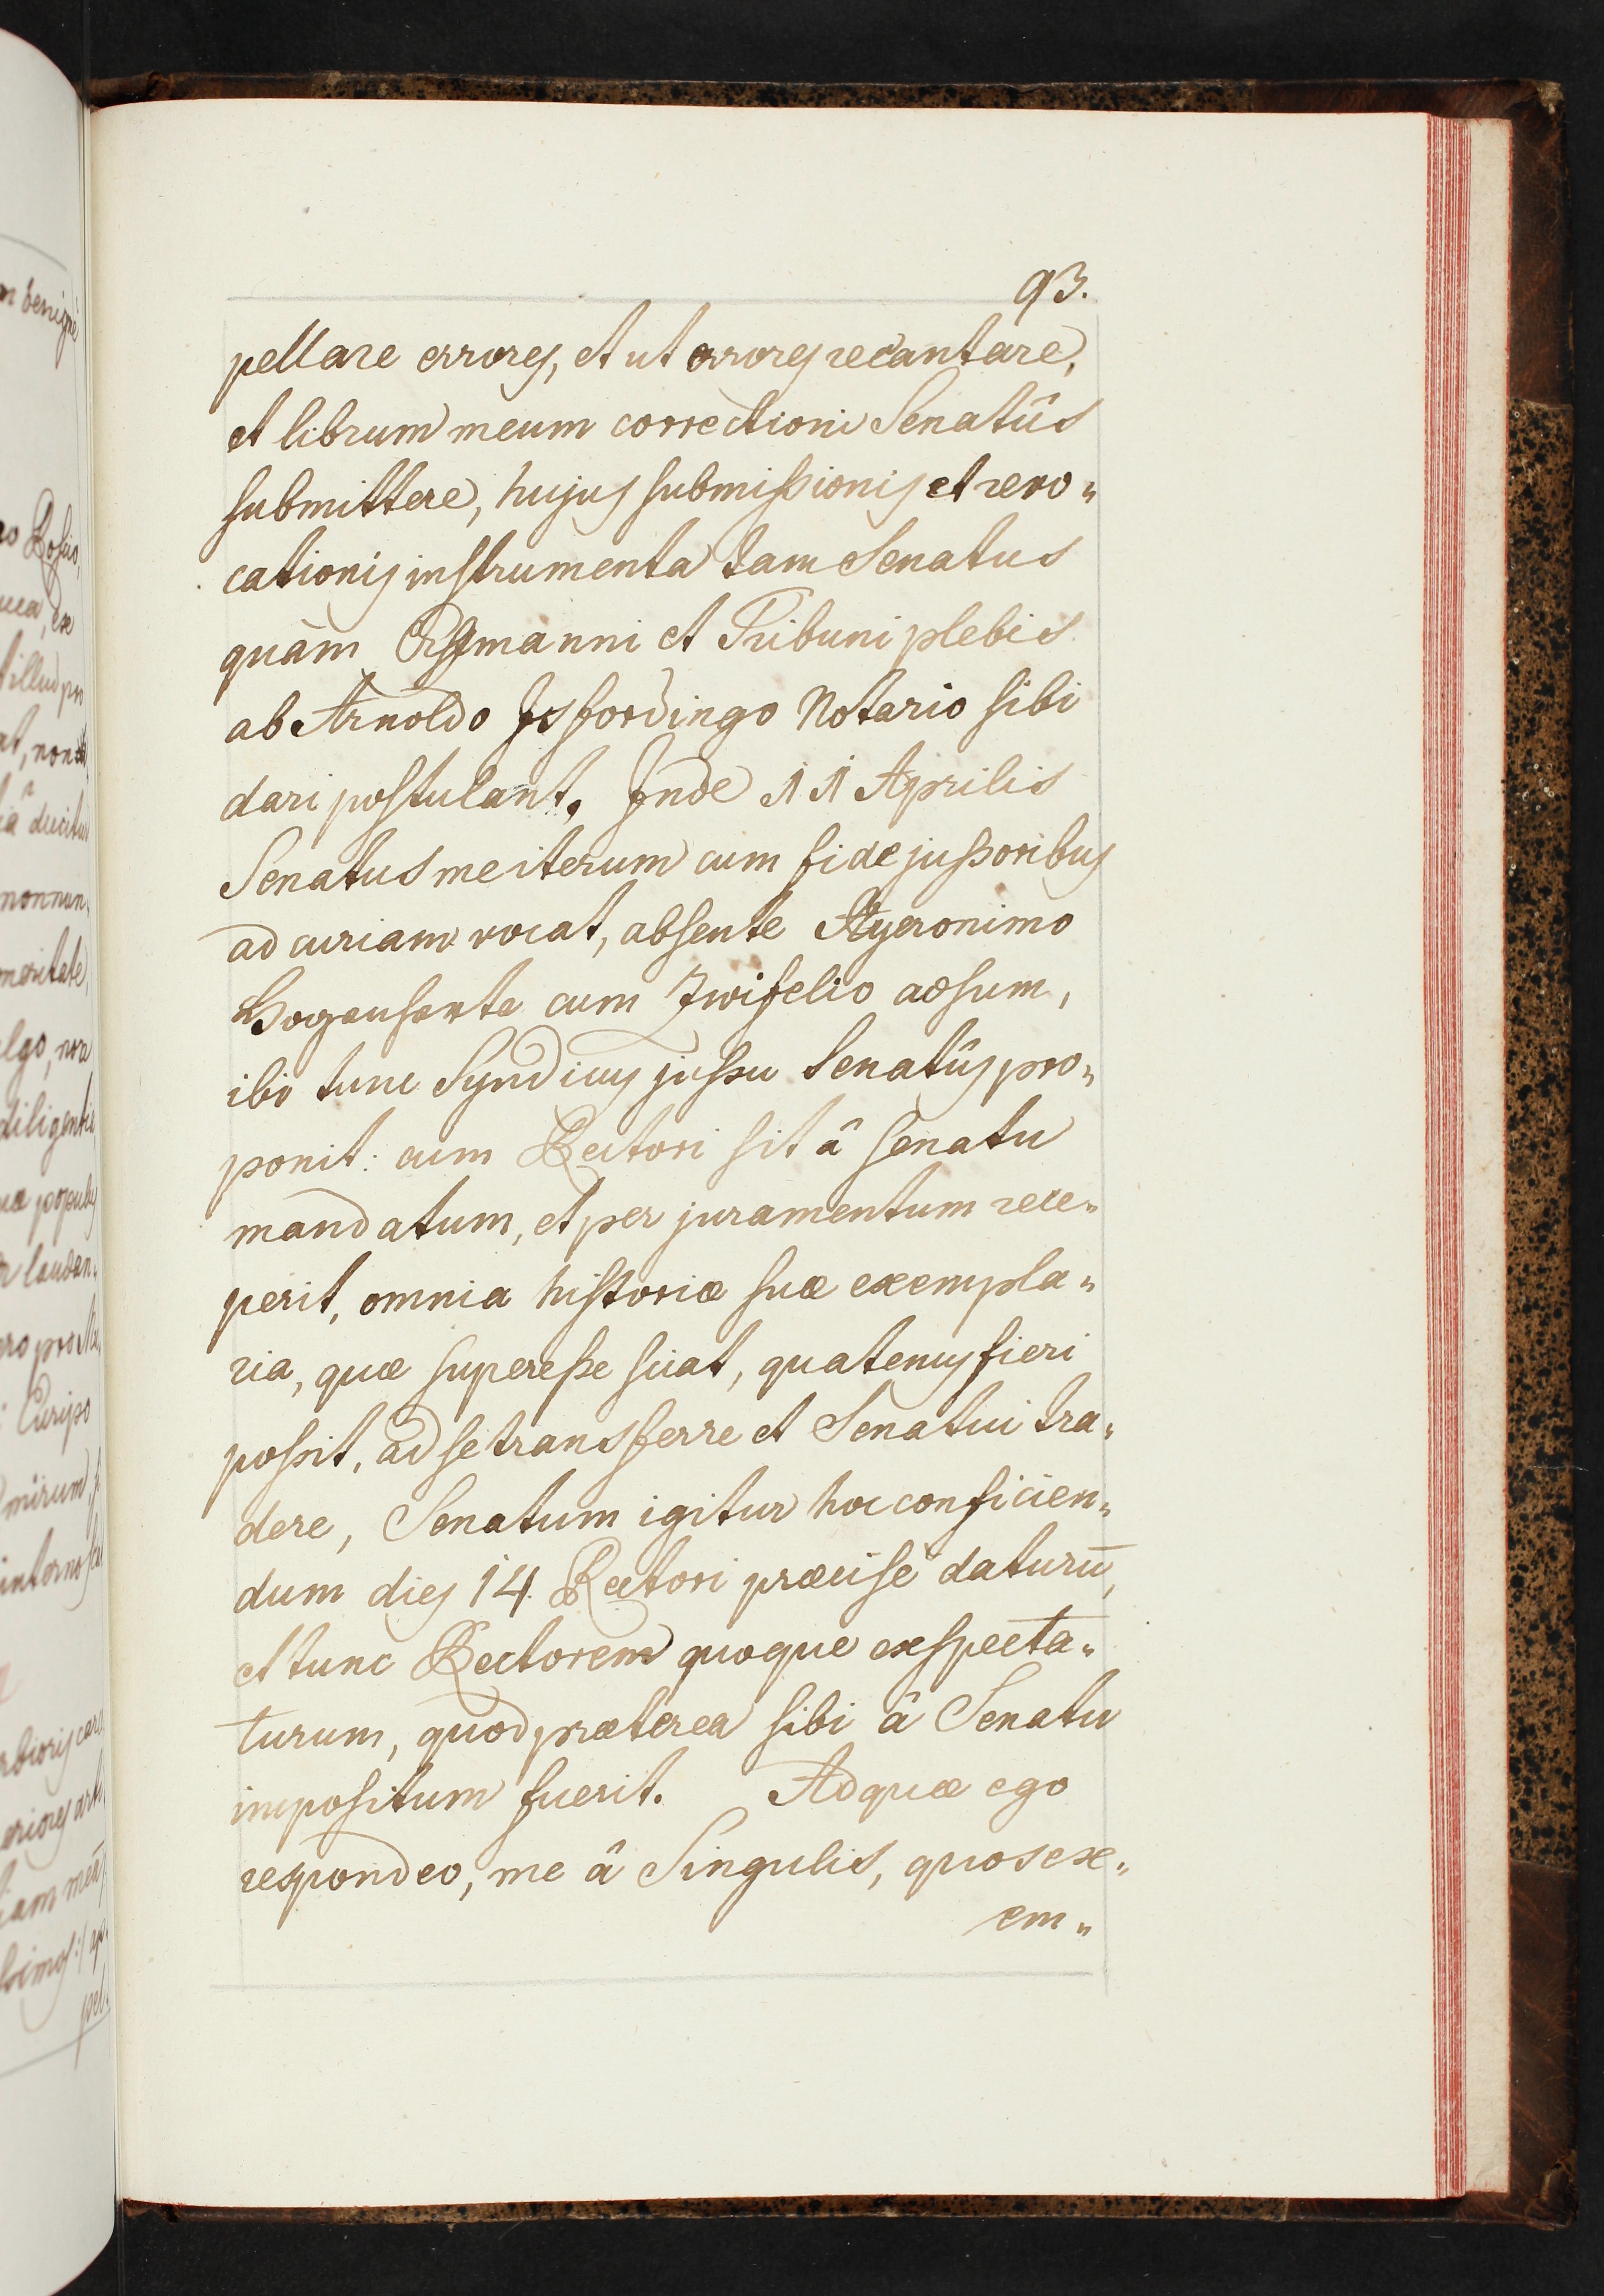 93.
pellare errores, et ut errores recantare,
et librum meum correctioni Senatûs
submittere, hujus submissionis et revo„
cationis instrumenta tam Senatus
quàm et Tribuni plebis
ab Arnoldo Isfordingo Notario sibi
dari postulant. Inde 11 Aprilis
Senatus me iterum cum fidejussoribus
ad curiam vocat, absente Hyeronimo
cum Zwifelio adsum,
ibi tunc Syndicus jussu Senatûs pro„
ponit: cum Rectori sit â senatu
mandatum, et per juramentum rece„
perit, omnia historiæ suæ exempla„
ria, quæ superesse sciat, quatenus fieri
possit, ad se transferre et Senatui tra„
dere, Senatum igitur hoc conficien„
dum dies 14. Rectori præcisè daturū,
et tunc Rectorem quoque exspecta„
turum, quod præterea sibi â Senatu
impositum fuerit. Ad quæ ego
respondeo, me â Singulis, quos ex„
em„
n benignè
ro
illud pro
at, non
iâ ducitur
nonnun„
elgo,
diligentiâ
populus
laudan„
Euripo
mirum,
interno
eriores
iam meā
pel„